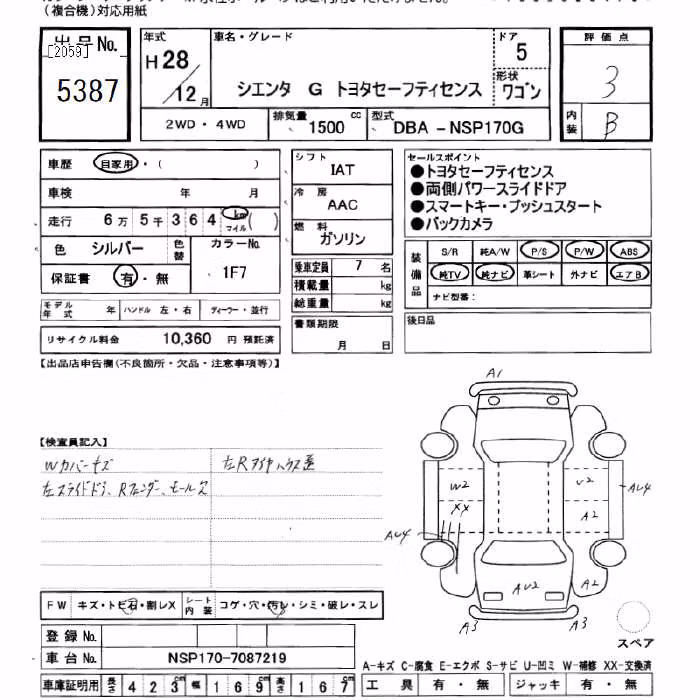 （複合機）対応用紙
出品No.
[2059]
5387
年式
H28/12月
車名・グレード
シエンタ G トヨタセーフティセンス
ドア
5
形状
ワゴン
評価点
3
内装
B
2WD・4WD
排気量
1500 cc
型式
DBA-NSP170G
車歴 自家用・( )
車検 年 月
走行 6万 5千 3 6 4 km マイル ( )
色 シルバー
色替
カラーNo.
1F7
保証書 有・無
シフト
IAT
冷房
AAC
燃料
ガソリン
乗車定員 7 名
積載量 kg
総重量 kg
書類期限
月 日
セールスポイント
●トヨタセーフティセンス
●両側パワースライドドア
●スマートキー・プッシュスタート
●バックカメラ
装備品
S/R 純A/W P/S P/W ABS
純TV 純ナビ 革シート 外ナビ エアB
ナビ型番：
後日品
モデル年式 年 ハンドル 左・右 ディーラー・並行
リサイクル料金 10,360 円 預託済
【出品店申告欄(不良箇所・欠品・注意事項等)】
【検査員記入】
Wカバーキズ
左スライドドア、Rフェンダー、モール ズ
A1
W2
XX
U2
A2
AU4
AU4
AU2
A2
A3
A3
スペア
FW キズ・トビ石・割レX
シート内装 コゲ・穴・汚レ・シミ・破レ・スレ
登録No.
車台No. NSP170-7087219
A-キズ C-腐食 E-エクボ S-サビ U-凹ミ W-補修 XX-交換済
車庫証明用 長さ 4 2 3 cm 幅 1 6 9 cm 高さ 1 6 7 cm
工具 有・無 ジャッキ 有・無